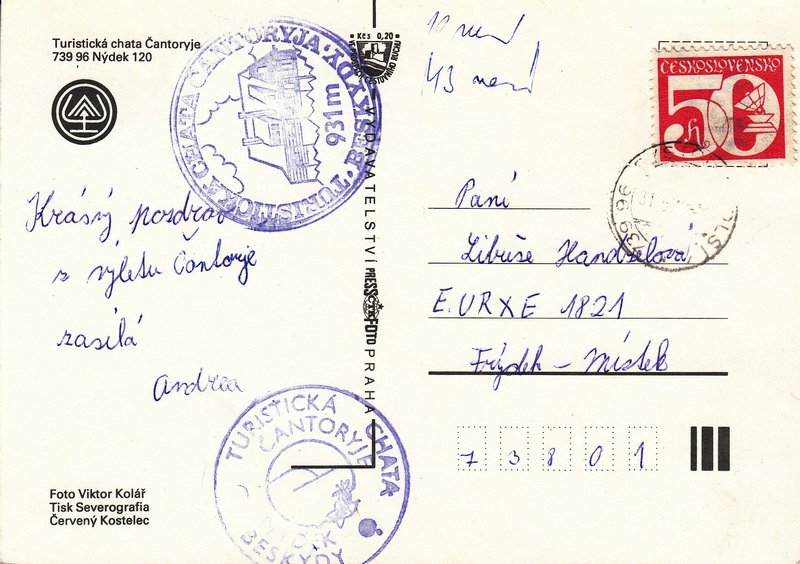 Turistická chata Čantoryje
739 96 Nýdek 120
TURISTICKÁ CHATA ČANTORYJA · BESKYDY ·
931 m
Kčs 0,20
ČESKOSLOVENSKO
50 h
739 96
Krásný pozdrav
z výletu Čantoryje
zasílá
Andrea
VYDAVATELSTVÍ PRESSFOTO PRAHA
Paní
Libuše Handzelová
E. URXE 1821
Frýdek - Místek
73801
TURISTICKÁ CHATA
ČANTORYJE
BESKYDY
Foto Viktor Kolář
Tisk Severografia
Červený Kostelec